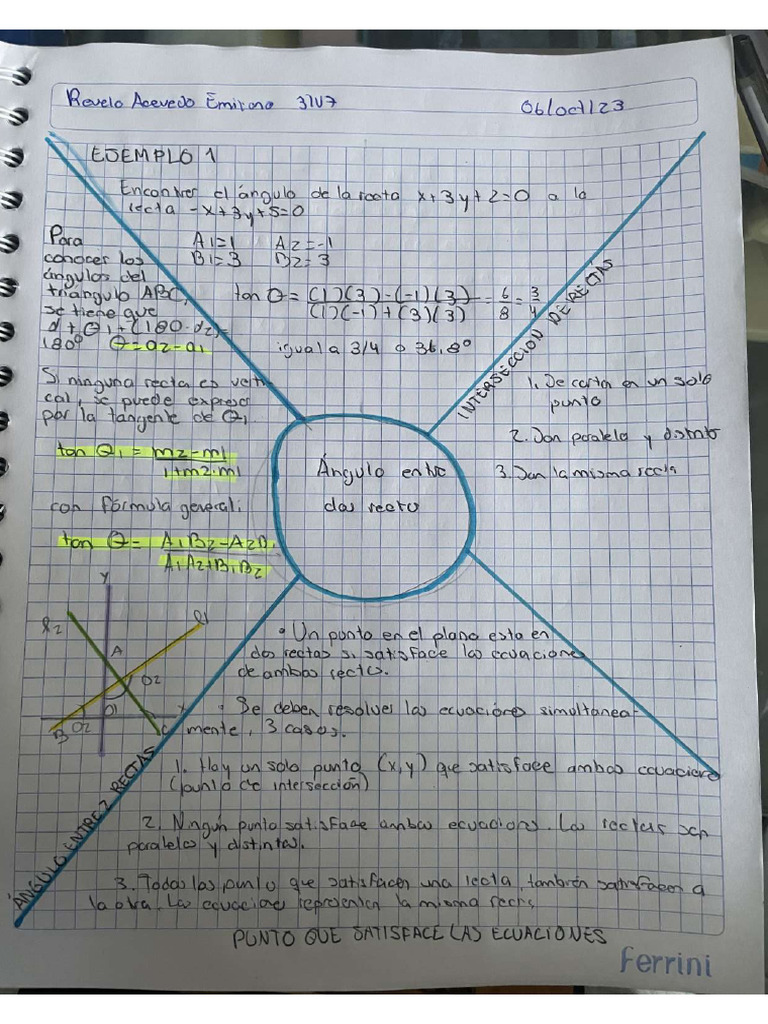 Revelo Acevedo Emiliano 3IV7
06/oct/23
EJEMPLO 1
Encontrer el ángulo de la recta x+3y+2=0 a la
recta -x+3y+5=0
A1=1 A2=-1
B1=3 B2=3
tan θ = (1)(3)-(-1)(3) = 6 = 3
(1)(-1)+(3)(3) 8 4
igual a 3/4 o 36.8°
Para
conocer los
ángulos del
triángulo ABC,
se tiene que
d+θ1+(180-d2)=
180° θ=a2-a1
Si ninguna recta es verti
cal, se puede expresar
por la tangente de θ1
tan θ1 = m2-m1
1+m2·m1
con fórmula general:
tan θ = A1B2-A2B1
A1A2+B1B2
INTERSECCION DE RECTAS
1. Se cortan en un solo
punto
2. Son paralela y distinto
3. Son la misma recta
Ángulo entre
dos recta
Y
l2
l1
A
θ2
θ1
X
B
C
ÁNGULO ENTRE 2 RECTAS
• Un punto en el plano esta en
dos rectas si satisface las ecuaciones
de ambas rectas.
• Se deben resolver las ecuaciones simultanea-
mente, 3 casos.
1. Hay un solo punto (x,y) que satisface ambas ecuaciones
(punto de intersección)
2. Ningún punto satisface ambas ecuaciones. Las rectas son
paralelas y distintas.
3. Todos los punto que satisfacen una recta, también satisfacen a
la otra. Las ecuaciones representan la misma recta
PUNTO QUE SATISFACE LAS ECUACIONES
Ferrini